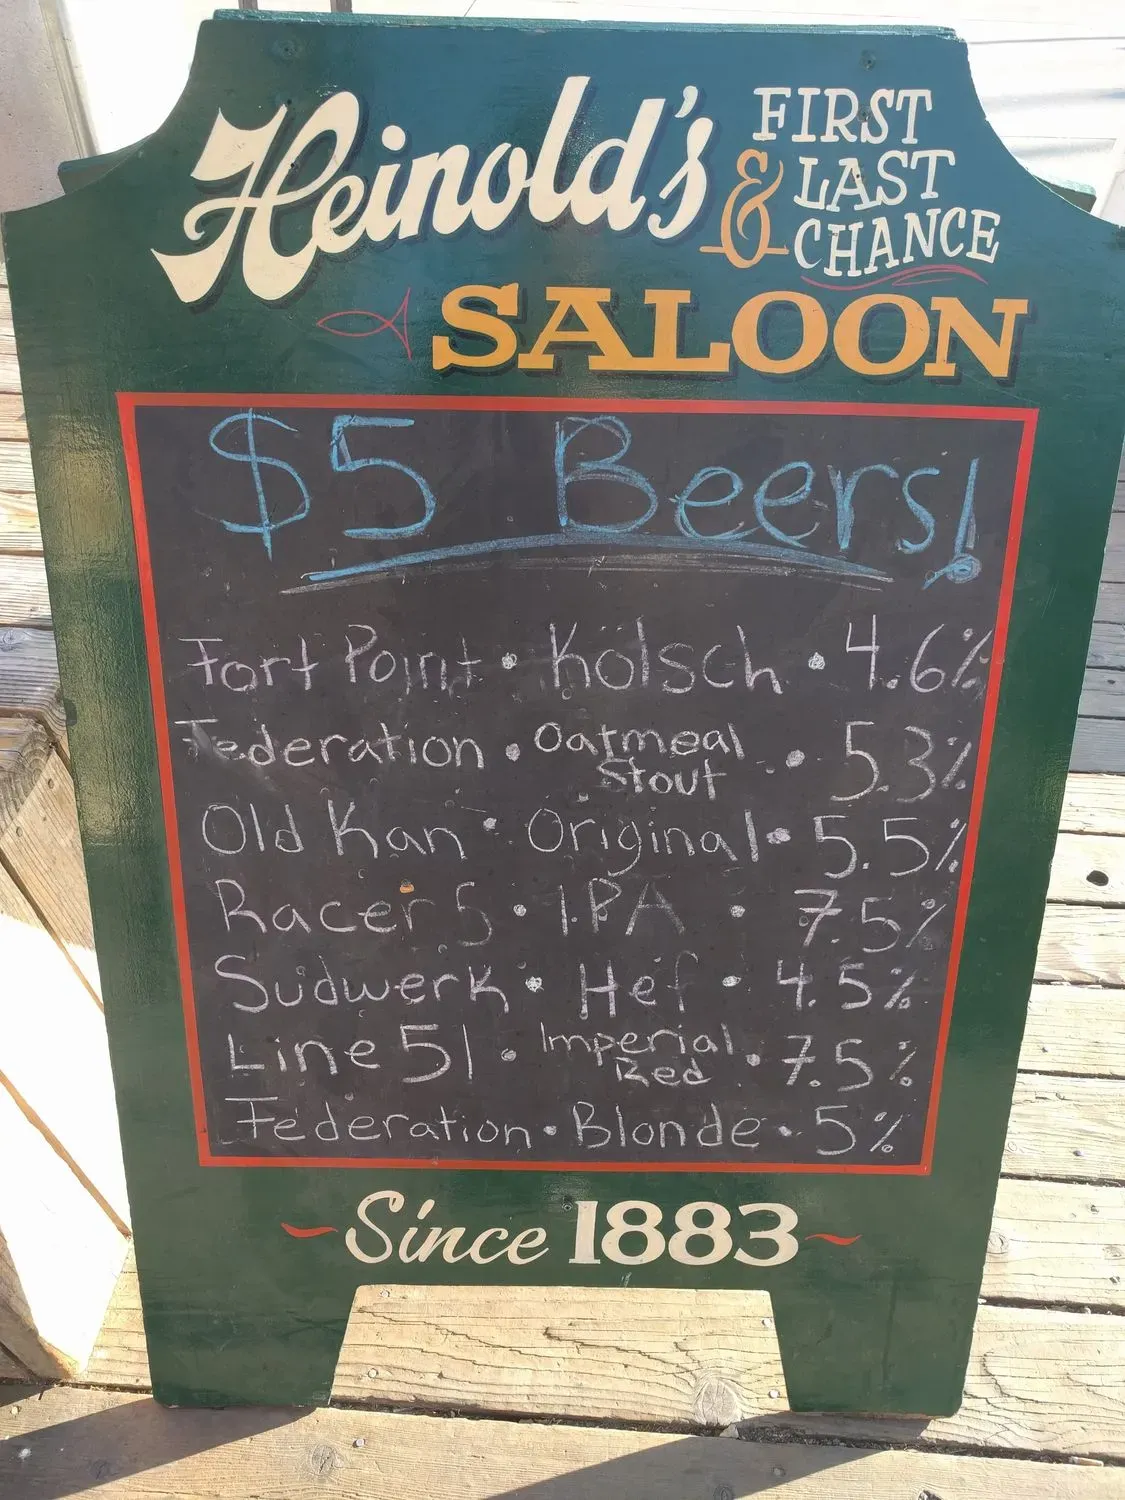 Heinold's FIRST
& LAST
CHANCE
SALOON
$5 Beers!
Fort Point • Kölsch • 4.6%
Federation • Oatmeal Stout • 5.3%
Old Kan • Original • 5.5%
Racer 5 • IPA • 7.5%
Sudwerk • Hef • 4.5%
Line 51 • Imperial Red • 7.5%
Federation • Blonde • 5%
~Since 1883~